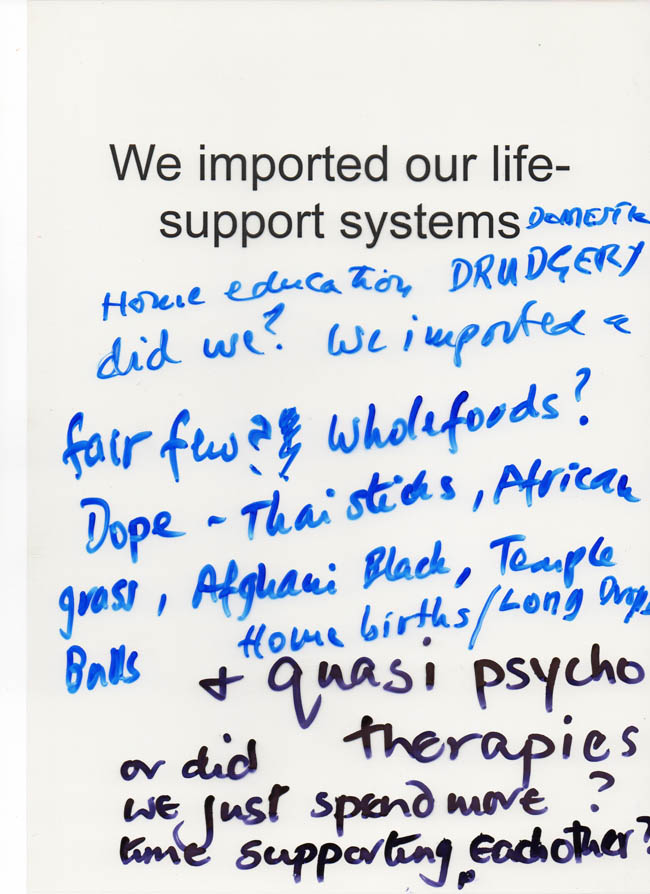 We imported our life-
support systems DOMESTIC
Home education DRUDGERY
did we? We imported a
fair few? Wholefoods?
Dope - Thai sticks, African
grass, Afghani Black, Temple
Home births/Long Drops
Balls + quasi psycho
therapies
or did
we just spend more ?
time supporting Eachother?